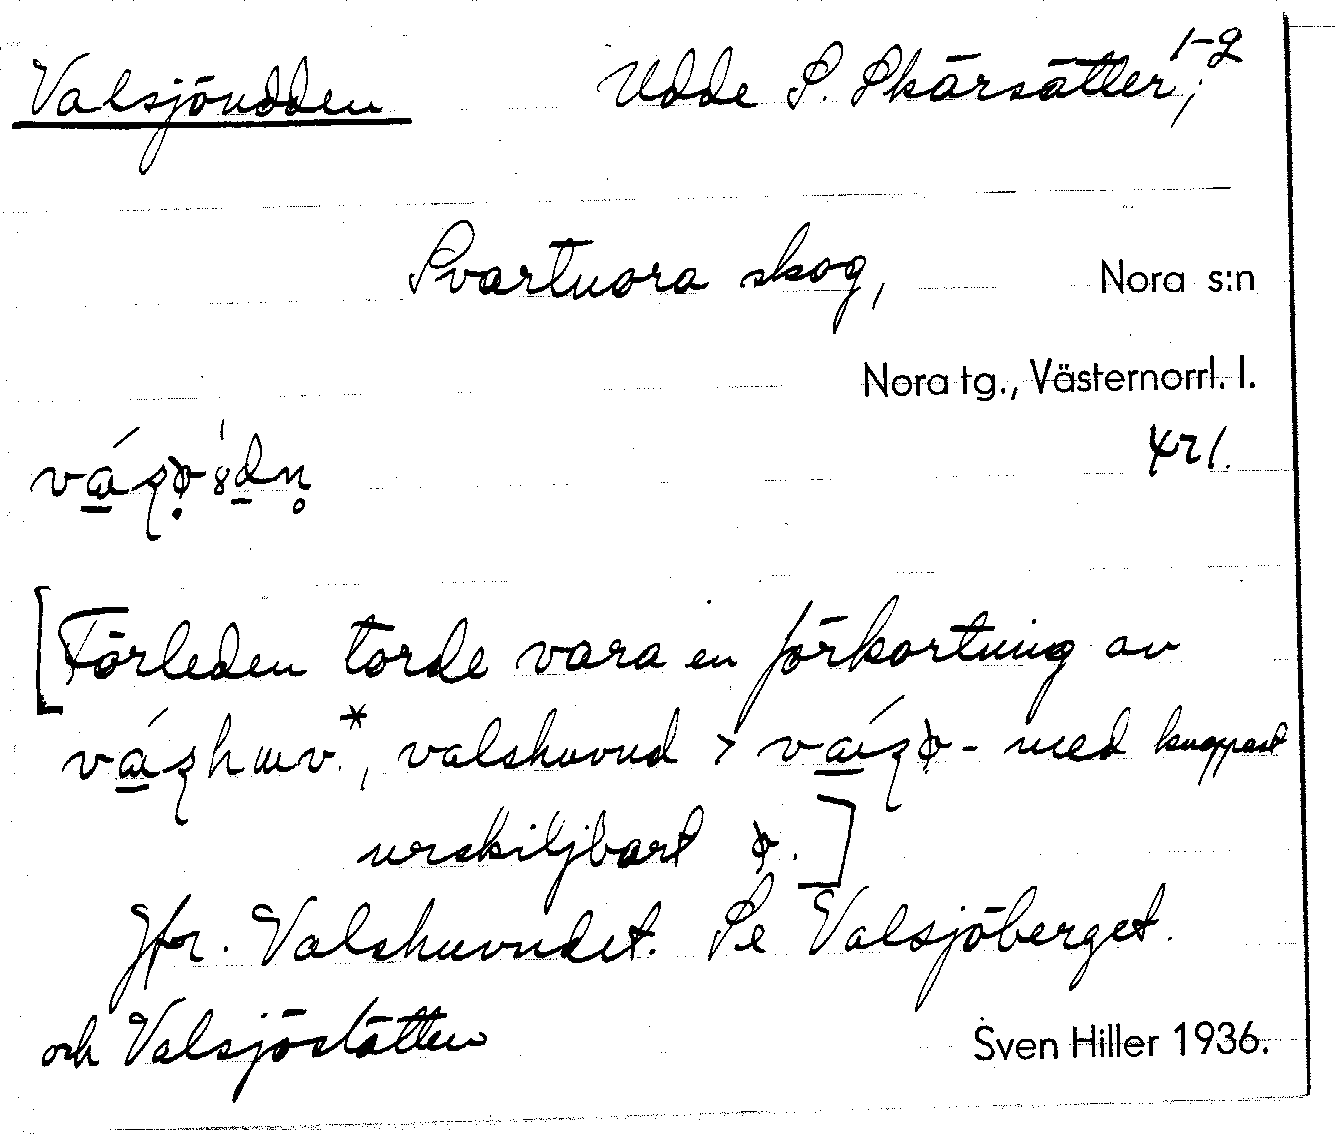 Valsjöudden Udde S. Skärsätter, 1-2
Svartnora skog, Nora s:n
Nora tg., Västernorrl. l.
421.
[Förleden torde vara en förkortning av
valshuvud > med knappast
urskiljbart ]
Jfr. Valshuvudet. Se Valsjöberget
och Valsjöslåtten
Sven Hiller 1936.